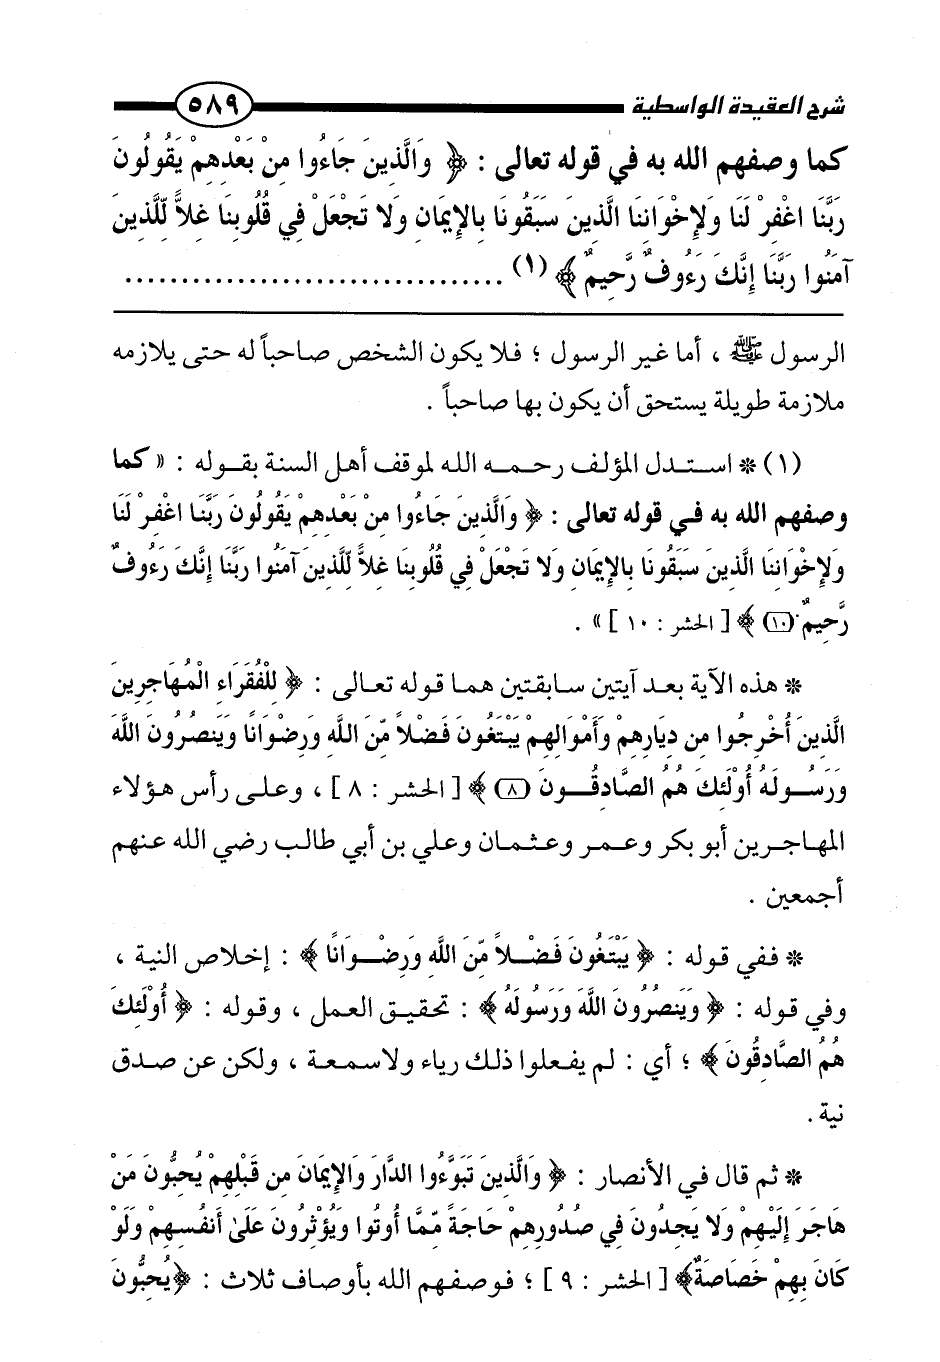 شرح العقيدة الواسطية ٥٨٩
كما وصفهم الله به في قوله تعالى : ﴿ وَالَّذِينَ جَاءُوا مِنْ بَعْدِهِمْ يَقُولُونَ
رَبَّنَا اغْفِرْ لَنَا وَلإِخْوَانِنَا الَّذِينَ سَبَقُونَا بِالإِيمَانِ وَلا تَجْعَلْ فِي قُلُوبِنَا غِلاًّ لِّلَّذِينَ
آمَنُوا رَبَّنَا إِنَّكَ رَءُوفٌ رَّحِيمٌ ﴾ (١) .................................
الرسول ﷺ ، أما غير الرسول ؛ فلا يكون الشخص صاحباً له حتى يلازمه
ملازمة طويلة يستحق أن يكون بها صاحباً .
(١) * استدل المؤلف رحمه الله لموقف أهل السنة بقوله : « كما
وصفهم الله به في قوله تعالى : ﴿ وَالَّذِينَ جَاءُوا مِنْ بَعْدِهِمْ يَقُولُونَ رَبَّنَا اغْفِرْ لَنَا
وَلإِخْوَانِنَا الَّذِينَ سَبَقُونَا بِالإِيمَانِ وَلا تَجْعَلْ فِي قُلُوبِنَا غِلاًّ لِّلَّذِينَ آمَنُوا رَبَّنَا إِنَّكَ رَءُوفٌ
رَّحِيمٌ (١٠) ﴾ [ الحشر : ١٠ ] » .
* هذه الآية بعد آيتين سابقتين هما قوله تعالى : ﴿ لِلْفُقَرَاءِ الْمُهَاجِرِينَ
الَّذِينَ أُخْرِجُوا مِن دِيَارِهِمْ وَأَمْوَالِهِمْ يَبْتَغُونَ فَضْلاً مِّنَ اللَّهِ وَرِضْوَانًا وَيَنصُرُونَ اللَّهَ
وَرَسُولَهُ أُوْلَئِكَ هُمُ الصَّادِقُونَ (٨) ﴾ [ الحشر : ٨ ] ، وعلى رأس هؤلاء
المهاجرين أبو بكر وعمر وعثمان وعلي بن أبي طالب رضي الله عنهم
أجمعين .
* ففي قوله : ﴿ يَبْتَغُونَ فَضْلاً مِّنَ اللَّهِ وَرِضْوَانًا ﴾ : إخلاص النية ،
وفي قوله : ﴿ وَيَنصُرُونَ اللَّهَ وَرَسُولَهُ ﴾ : تحقيق العمل ، وقوله : ﴿ أُوْلَئِكَ
هُمُ الصَّادِقُونَ ﴾ ؛ أي : لم يفعلوا ذلك رياء ولا سمعة ، ولكن عن صدق
نية .
* ثم قال في الأنصار : ﴿ وَالَّذِينَ تَبَوَّءُوا الدَّارَ وَالإِيمَانَ مِن قَبْلِهِمْ يُحِبُّونَ مَنْ
هَاجَرَ إِلَيْهِمْ وَلا يَجِدُونَ فِي صُدُورِهِمْ حَاجَةً مِّمَّا أُوتُوا وَيُؤْثِرُونَ عَلَىٰ أَنفُسِهِمْ وَلَوْ
كَانَ بِهِمْ خَصَاصَةٌ ﴾ [ الحشر : ٩ ] ؛ فوصفهم الله بأوصاف ثلاث : ﴿ يُحِبُّونَ